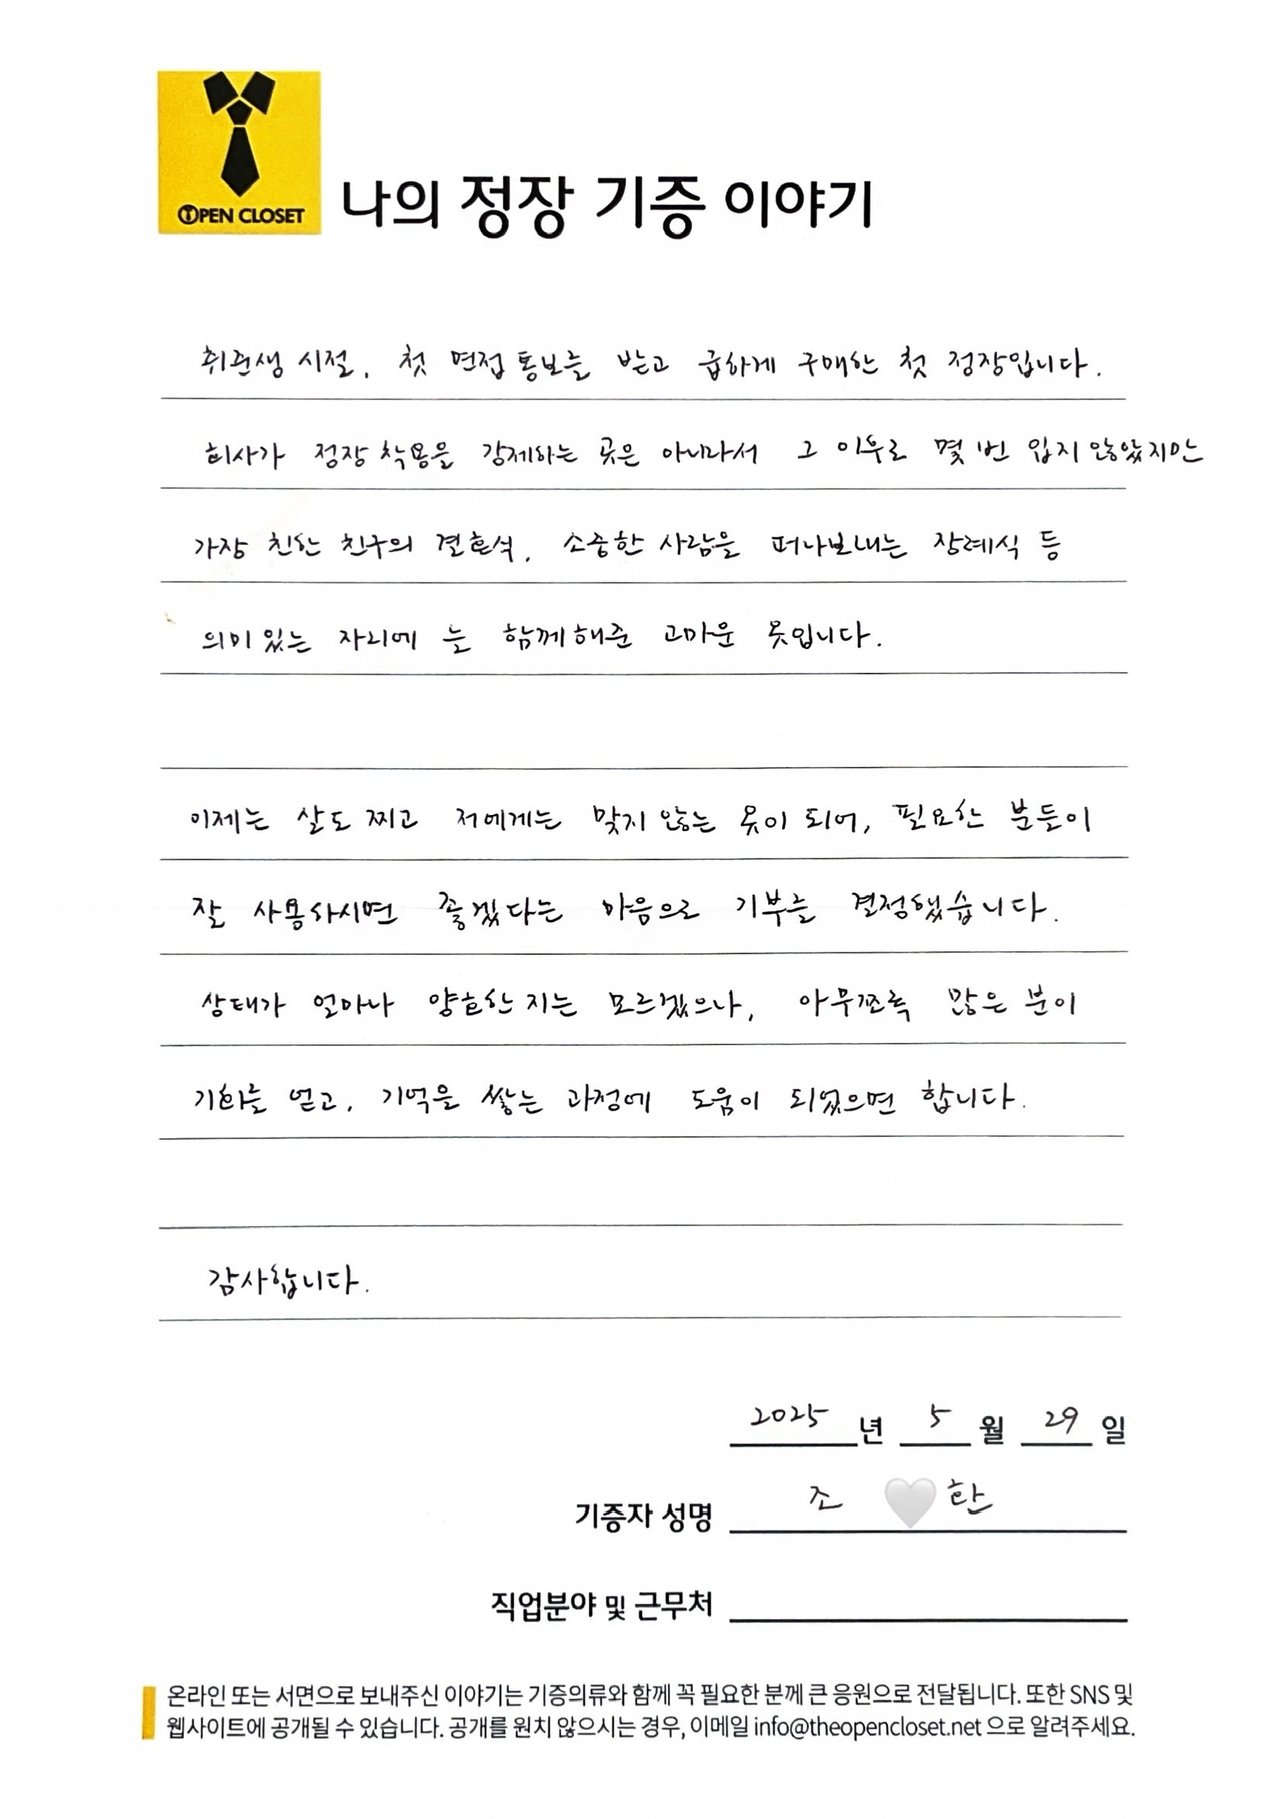 OPEN CLOSET
나의 정장 기증 이야기
취준생 시절, 첫 면접 통보를 받고 급하게 구매한 첫 정장입니다.
회사가 정장 착용을 강제하는 곳은 아니라서 그 이후로 몇 번 입지 않았지만
가장 친한 친구의 결혼식, 소중한 사람을 떠나보내는 장례식 등
의미 있는 자리에 늘 함께해준 고마운 옷입니다.
이제는 살도 찌고 저에게는 맞지 않는 옷이 되어, 필요한 분들이
잘 사용하시면 좋겠다는 마음으로 기부를 결정했습니다.
상태가 얼마나 양호한 지는 모르겠으나, 아무쪼록 많은 분이
기회를 얻고, 기억을 쌓는 과정에 도움이 되었으면 합니다.
감사합니다.
2025 년 5 월 29 일
기증자 성명 조 🤍 한
직업분야 및 근무처
온라인 또는 서면으로 보내주신 이야기는 기증의류와 함께 꼭 필요한 분께 큰 응원으로 전달됩니다. 또한 SNS 및
웹사이트에 공개될 수 있습니다. 공개를 원치 않으시는 경우, 이메일 info@theopencloset.net 으로 알려주세요.